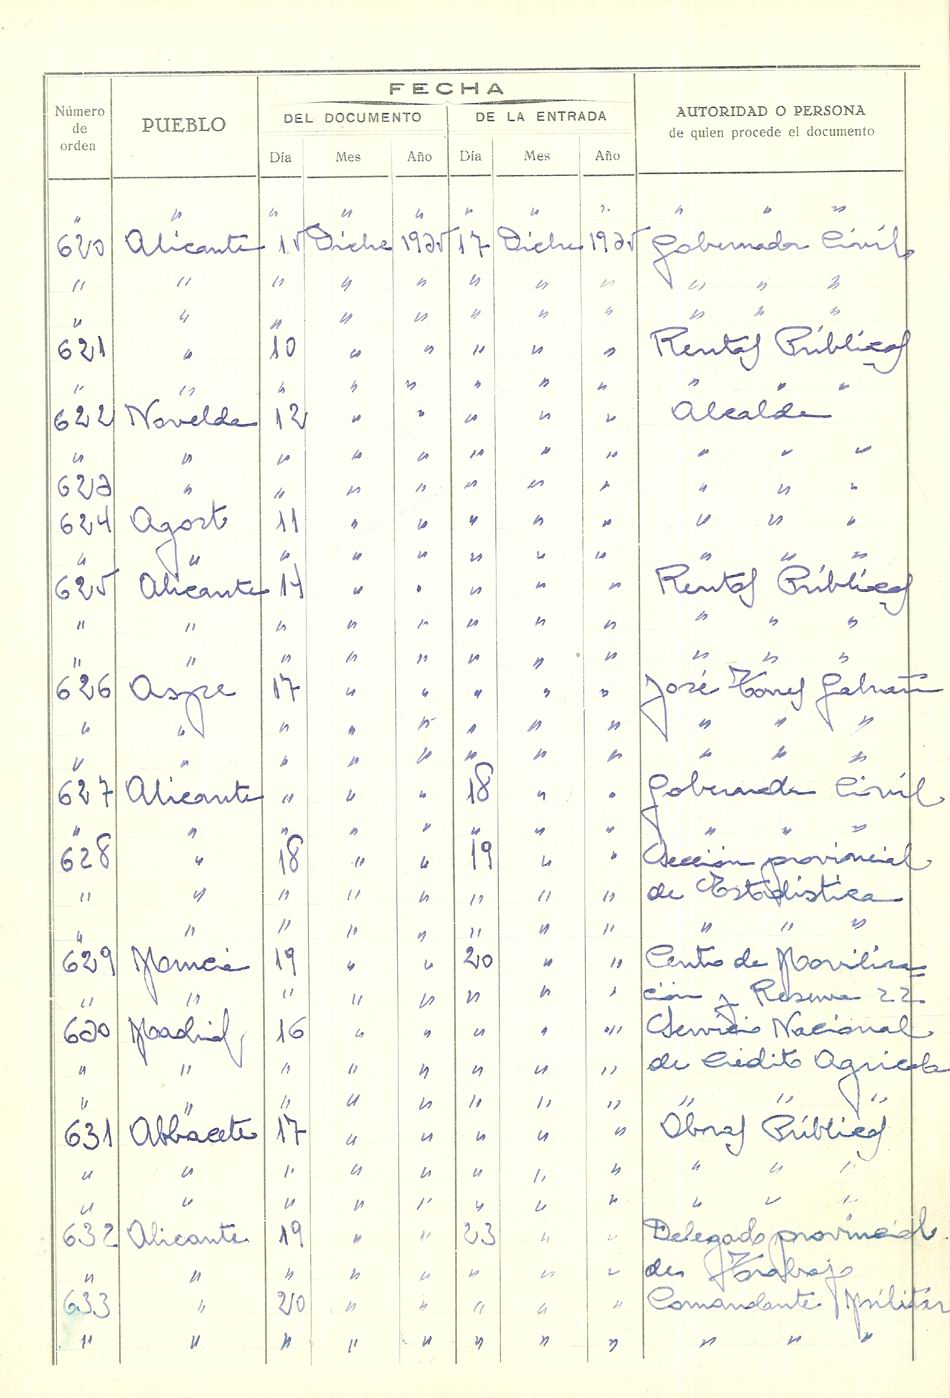 FECHA
Número de orden PUEBLO DEL DOCUMENTO DE LA ENTRADA AUTORIDAD O PERSONA
de quien procede el documento
Día Mes Año Día Mes Año
" " " " " " " " " " "
620 Alicante 15 Dicbre 1935 17 Dicbre 1935 Gobernador Civil
" " " " " " " " " " "
" " " " " " " " " " "
621 " 10 " " " " " Rentas Públicas
" " " " " " " " " " "
622 Novelda 12 " " " " " Alcalde
" " " " " " " " " " "
623 " " " " " " " " " "
624 Agost 11 " " " " " " " "
" " " " " " " " " " "
625 Alicante 14 " " " " " Rentas Públicas
" " " " " " " " " " "
" " " " " " " " " " "
626 Aspe 17 " " " " " José Torres
" " " " " " " " " " "
" " " " " " " " " " "
627 Alicante " " " 18 " " Gobernador Civil
" " " " " " " " " " "
628 " 18 " " 19 " " Sección provincial
" " " " " " " " de Estadística
" " " " " " " " " " "
629 Murcia 19 " " 20 " " Centro de Moviliza
" " " " " " " " ción y Reserva 22.
630 Madrid 16 " " " " " Servicio Nacional
" " " " " " " " de Crédito Agrícola
" " " " " " " " " " "
631 Albacete 17 " " " " " Obras Públicas
" " " " " " " " " " "
" " " " " " " " " " "
632 Alicante 19 " " 23 " " Delegado provincial
" " " " " " " " de Trabajo
633 " 20 " " " " " Comandante Militar
" " " " " " " " " " "